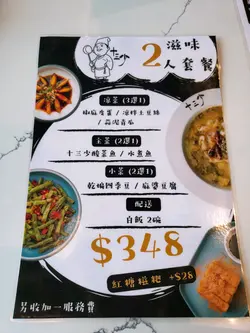 十三少
2 滋味
人套餐
涼菜 (3選1)
椒麻皮蛋 / 涼拌土豆絲
/ 蒜泥青瓜
主菜 (2選1)
十三少酸菜魚 / 水煮魚
小菜 (2選1)
乾煸四季豆 / 麻婆豆腐
配送
白飯 2碗
$348
紅糖糍粑 +$28
另收加一服務費